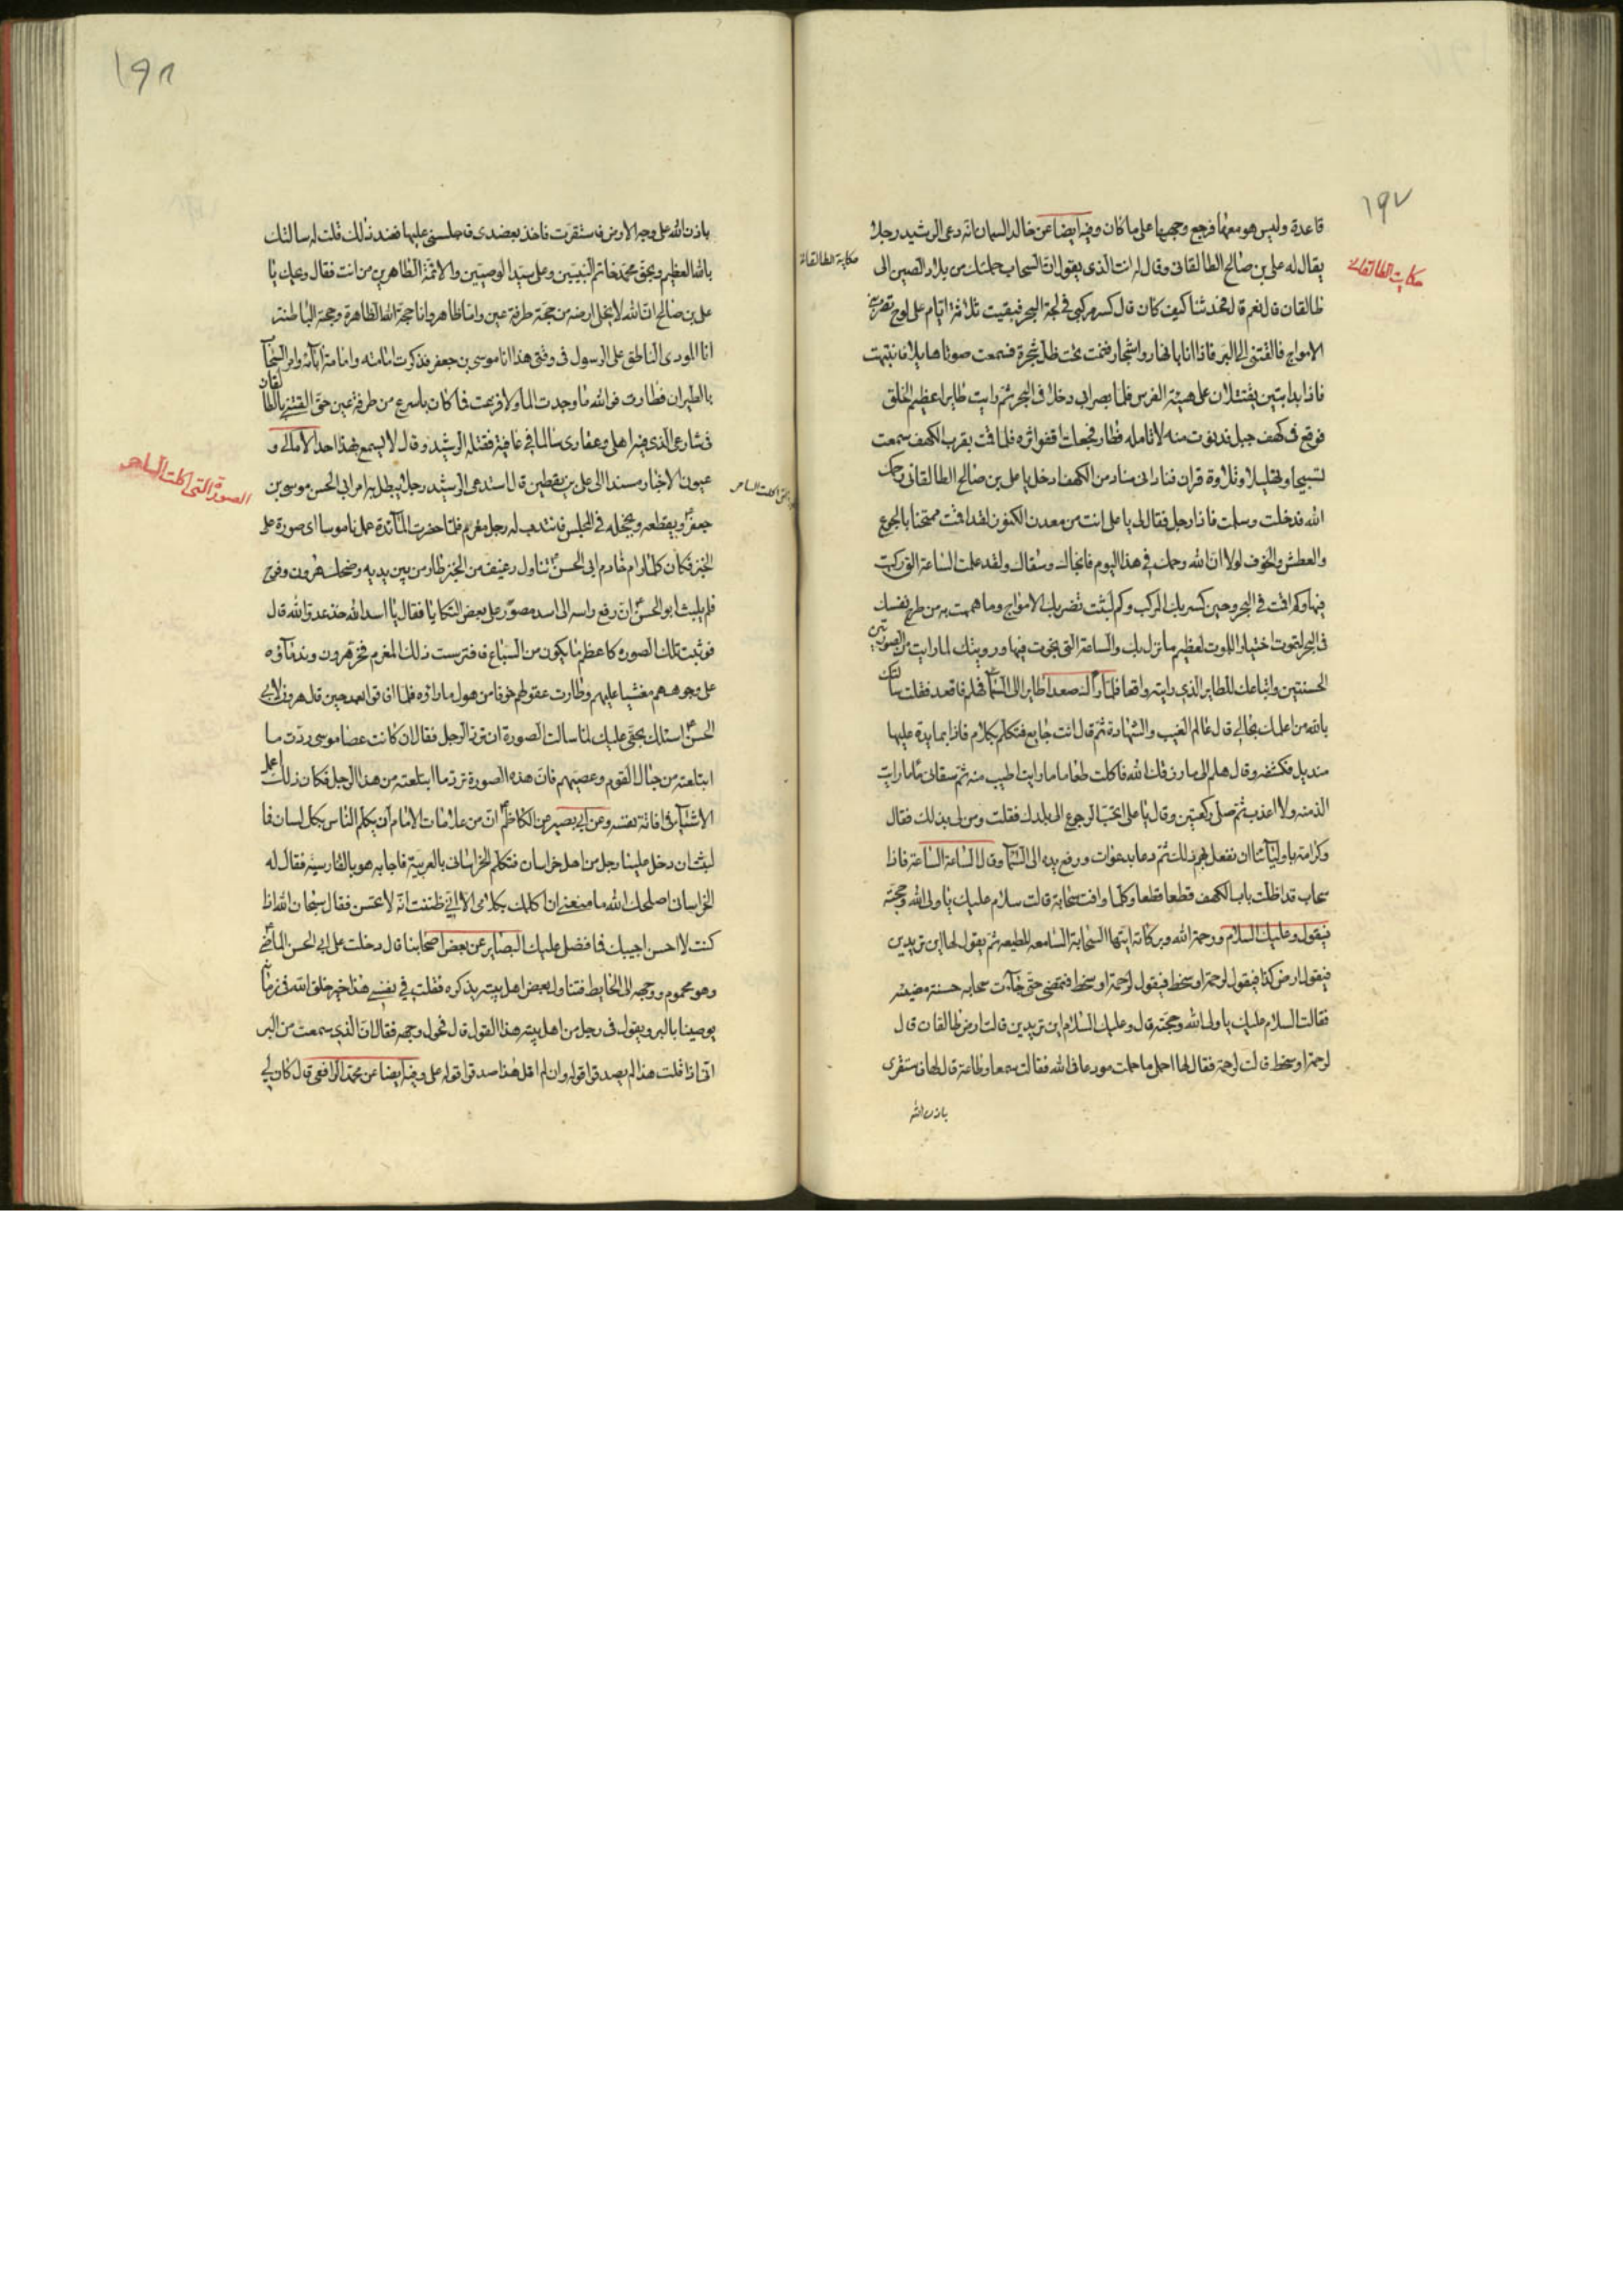 ١٩٧
قاعدة وليس هو معها فرجع وجهها على ما كان وفيه ايضا عن خالد السمان انه دعى الرشيد رجلا
حكاية الطالقانى
يقال له على بن صالح الطالقانى وقال له انت الذى يقول ان السحاب حملتك من بلاد الصين الى
حكاية الطالقانى
طالقان قال نعم قال فحدثنا كيف كان قال كسر مركبى فى لجة البحر فبقيت ثلاثة ايام على لوح تضربنى
الامواج فالقتنى الى البر فاذا انا بانهار واشجار فنمت تحت ظل شجرة فسمعت صوتا هايلا فانتبهت
فاذا بدابتين يقتتلان على هيئة الفرس فلما بصرانى دخلا فى البحر ثم رايت طايرا عظيم الخلق
فوقع فى كهف جبل فدنوت منه لاتامله فطار فجعلت اقفو اثره فلما قمت بقرب الكهف سمعت
تسبيحا وتهليلا وتلاوة قران فنادانى مناد من الكهف ادخل يا على بن صالح الطالقانى رحمك
الله فدخلت وسلمت فاذا رجل فقال لى يا على انت من معدن الكنوز لقد اقمت ممتحنا بالجوع
والعطش والخوف لولا ان الله رحمك فى هذا اليوم فانجاك وسقاك ولقد علمت الساعة التى ركبت
فيها وكم اقمت فى البحر وحين كسر بك المركب وكم لبثت تضربك الامواج وما هممت به من طرح نفسك
فى البحر لتموت اختيارا للموت لعظيم ما نزل بك والساعة التى نجوت فيها ورويتك لما رايت من الصورتين
الحسنتين واتباعك للطاير الذى رايته واقعا فلما راك صعد طايرا الى السماء فهلم فاقعد فقلت سالتك
بالله من اعلمك بحالى قال عالم الغيب والشهادة ثم قال انت جايع فتكلم بكلام فاذا بمايدة عليها
منديل فكشفه وقال هلم الى ما رزقك الله فاكلت طعاما ما رايت اطيب منه ثم سقانى ماء ما رايت
الذ منه ولا اعذب ثم صلى ركعتين وقال يا على اتحب الرجوع الى بلدك فقلت ومن لى بذلك فقال
وكرامة باوليآئنا ان نفعل بهم ذلك ثم دعا بدعوات ورفع يده الى السماء وقال الساعة الساعة فاذا
سحاب قد اظلت باب الكهف قطعا قطعا وكلما وافت سحابة قالت سلام عليك يا ولى الله وحجته
فيقول وعليك السلام ورحمة الله وبركاته ايتها السحابة السامعه المطيعه ثم يقول لها اين تريدين
فيقول ارض كذا فيقول لرحمة او سخط فيقول لرحمة او سخط فتمضى حتى جآءت سحابه حسنة مضيئه
فقالت السلام عليك يا ولى الله وحجته قال وعليك السلام اين تريدين قالت ارض طالقان قال
لرحمة او سخط قالت لرحمة فقال لها احمل ما حملت مودعا فى الله فقالت سمعا وطاعة قال لها فاستقرى
باذن الله
١٩٨
باذن الله على وجه الارض فاستقرت فاخذ بعضدى فاجلسنى عليها فعند ذلك قلت له سالتك
بالله العظيم وبحق محمد خاتم النبيين وعلى سيد الوصيين والائمة الطاهرين من انت فقال ويحك يا
على بن صالح ان الله لا يخلى ارضه من حجة طرفة عين واما ظاهر وانا حجة الله الظاهرة وحجة الباطنة
انا المودى الناطق على الرسول فى وقتى هذا انا موسى بن جعفر فذكرت امامته وامامة ابآئه وامر السحاب
بالطيران فطارت فوالله ما وجدت الما ولا فزعت فما كان باسرع من طرفة عين حتى القتنى بالطالقان
فى شارعى الذى فيه اهلى وعقارى سالما فى عافية فقتله الرشيد وقال لا يسمع بهذا احد الامالى و
الصورة التى اكلت الساحر
عيون الاخبار مسندا الى على بن يقطين قال استدعى الرشيد رجلا يبطل به امر ابى الحسن موسى بن
جعفر ويقطعه ويخجله فى المجلس فانتدب له رجل مغرم فلما حضرت المآئدة عمل ناموسا اى صورة على
الخبز فكان كلما رام خادم ابى الحسن تناول رغيف من الخبز طار من بين يديه وضحك هرون وفرح
فلم يلبث ابو الحسن ان رفع راسه الى اسد مصور على بعض التكايا فقال يا اسد الله خذ عدو الله قال
فوثبت تلك الصوره كاعظم ما يكون من السباع فافترست ذلك المغرم فخر هرون وندمآؤه
على وجوههم مغشيا عليهم وطارت عقولهم خوفا من هول ما راوه فلما افاقوا بعد حين قال هرون لابى
الحسن اسئلك بحقى عليك لما سالت الصورة ان ترد الرجل فقال ان كانت عصا موسى ردت ما
ابتلعته من حبال القوم وعصيهم فان هذه الصورة ترد ما ابتلعته من هذا الرجل فكان ذلك اعمل
الاشيآء فى افاتة نفسه وعن ابى بصير عن الكاظم ان من علامات الامام ان يكلم الناس بكل لسان فما
لبث ان دخل علينا رجل من اهل خراسان فتكلم الخراسانى بالعربية فاجابه هو بالفارسية فقال له
الخراسان اصلحك الله ما منعنى ان اكلمك بكلامى الا انى ظننت انه لا تحسن فقال سبحان الله اذا
كنت لا احسن اجيبك فما فضل عليك البصاير عن بعض اصحابنا قال دخلت على ابى الحسن الماضى
وهو محموم ووجهه الى الحايط فتناول بعض اهل بيته يذكره فقلت فى نفسى هذا خير خلق الله فى زمانه
يوصينا بالبر ويقول فى رجل من اهل بيته هذا القول قال فحول وجهه فقال ان الذى سمعت من البر
انى اذا قلت هذا لم يصدقوا قوله وان لم اقل هذا صدقوا قوله على وفيه ايضا عن محمد الرافعى قال كان لى